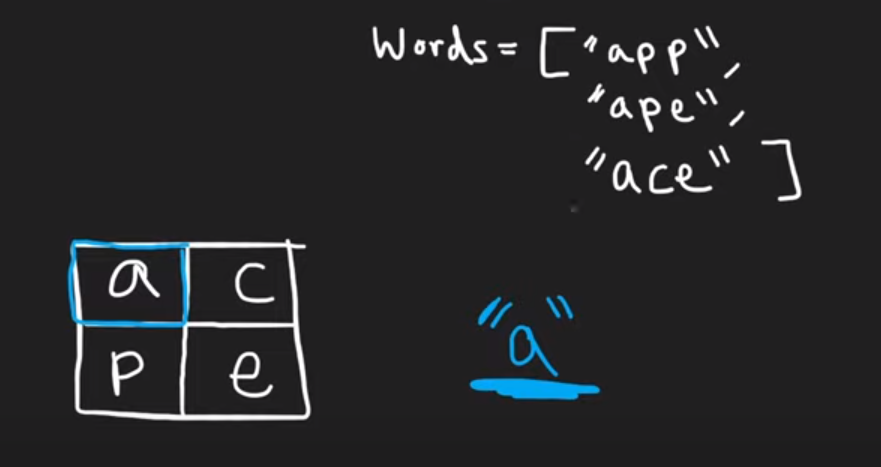 Words = ["app",
"ape",
"ace"]
a c
p e
"a"